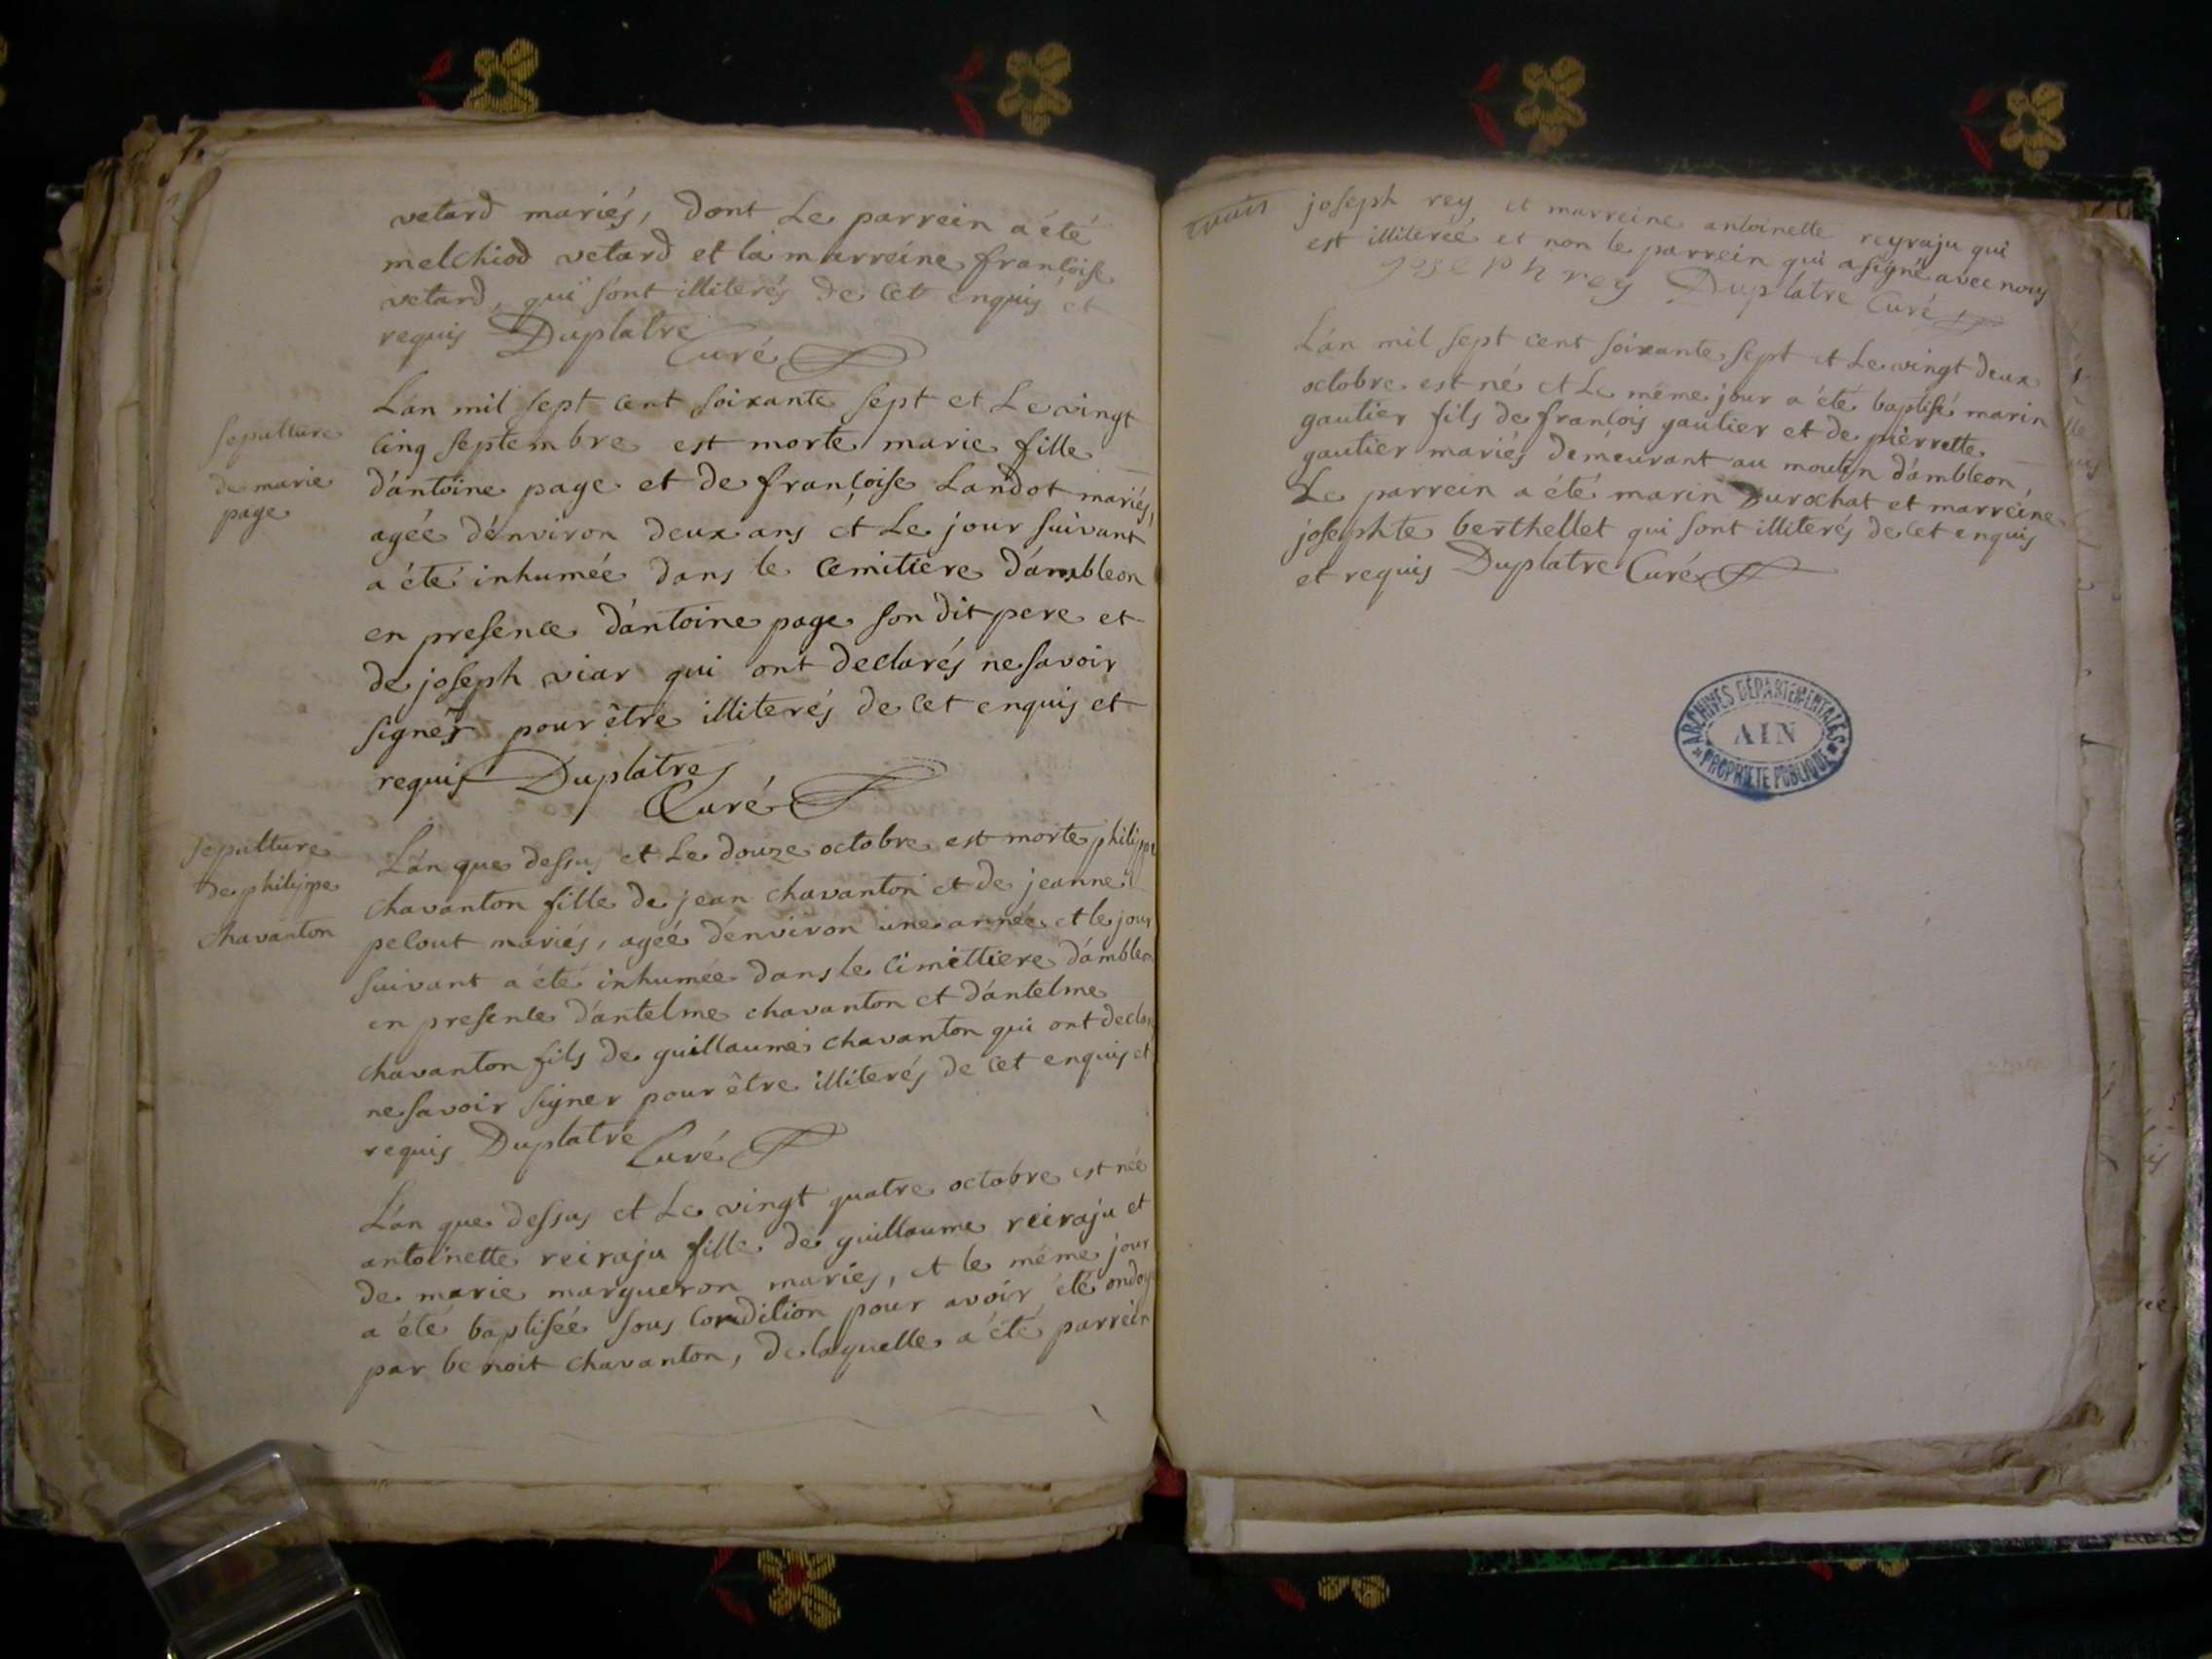 vetard mariés, dont Le parrein a été
melchiod vetard et la marreine françoise
vetard, qui sont illiterés de cet enquis et
requis Duplatre
Curé
sepulture
de marie
page
L'an mil sept cent soixante sept et Le vingt
cinq septembre est morte marie fille
d'antoine page et de françoise Landot mariés,
agée d'environ deux ans et Le jour suivant
a été inhumée dans le cemitiere d'ambleon
en presence d'antoine page son dit pere et
de joseph viar qui ont declarés ne savoir
signer pour être illiterés de cet enquis et
requis Duplatre
Curé
sepulture
de philippe
chavanton
L'an que dessus et Le douze octobre est morte philippe
chavanton fille de jean chavanton et de jeanne
pelout mariés, agée d'environ une année et le jour
suivant a été inhumée dans le cimittiere d'ambleon
en presence d'antelme chavanton et d'antelme
chavanton fils de guillaume chavanton qui ont declar
ne savoir signer pour être illiterés de cet enquis et
requis Duplatre
Curé
L'an que dessus et Le vingt quatre octobre est née
antoinette reiraju fille de guillaume reiraju et
de marie margueron mariés, et le même jour
a été baptisée sous condition pour avoir été ondoy
par benoit chavanton, de laquelle a été parrein
joseph rey et marreine antoinette reyraju qui
est illiterée et non le parrein qui a signé avec nous
joseph rey Duplatre Curé
L'an mil sept cent soixante sept et Le vingt deux
octobre est né et Le même jour a été baptisé marin
gautier fils de françois gautier et de pierrette
gautier mariés demeurant au moulin d'ambleon,
Le parrein a été marin Durochat et marreine
josephte berthellet qui sont illiterés de cet enquis
et requis Duplatre Curé
ARCHIVES DÉPARTEMENTALES
AIN
PROPRIÉTÉ PUBLIQUE